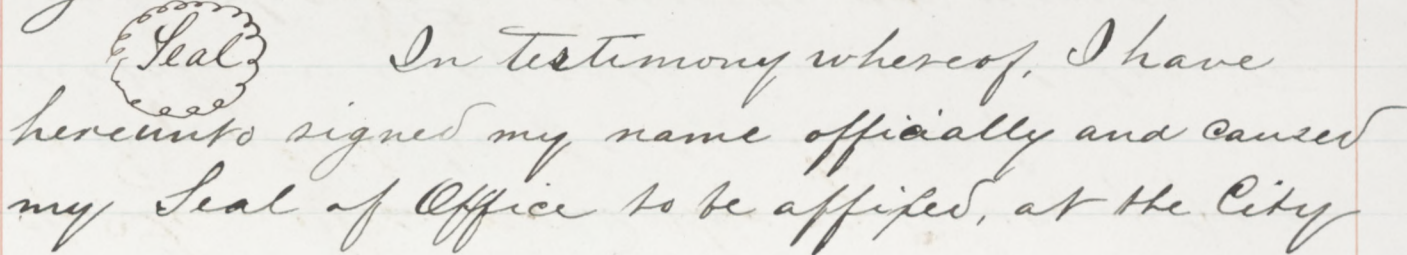 Seal In testimony whereof, I have
hereunto signed my name officially and caused
my Seal of Office to be affixed, at the City